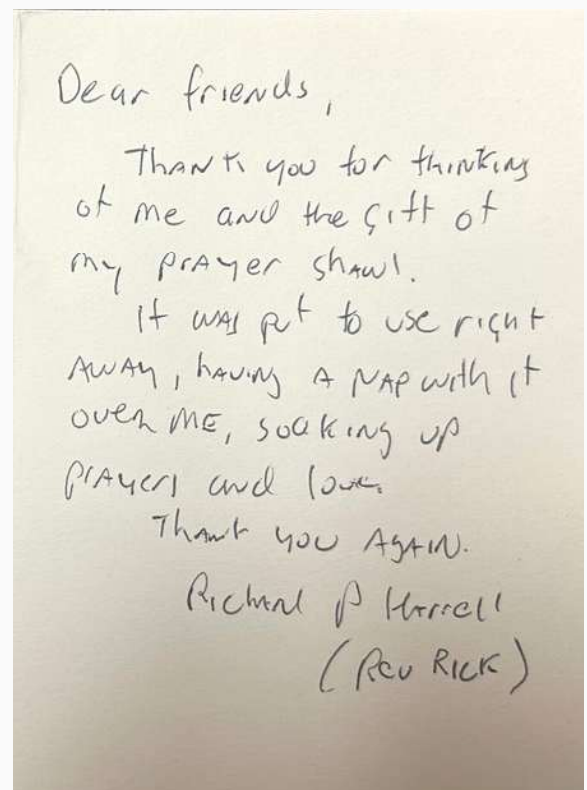 Dear friends,
Thank you for thinking
of me and the gift of
my prayer shawl.
It was put to use right
away, having a nap with it
over me, soaking up
prayers and love.
Thank you again.
Richard P Harrell
(Rev Rick)